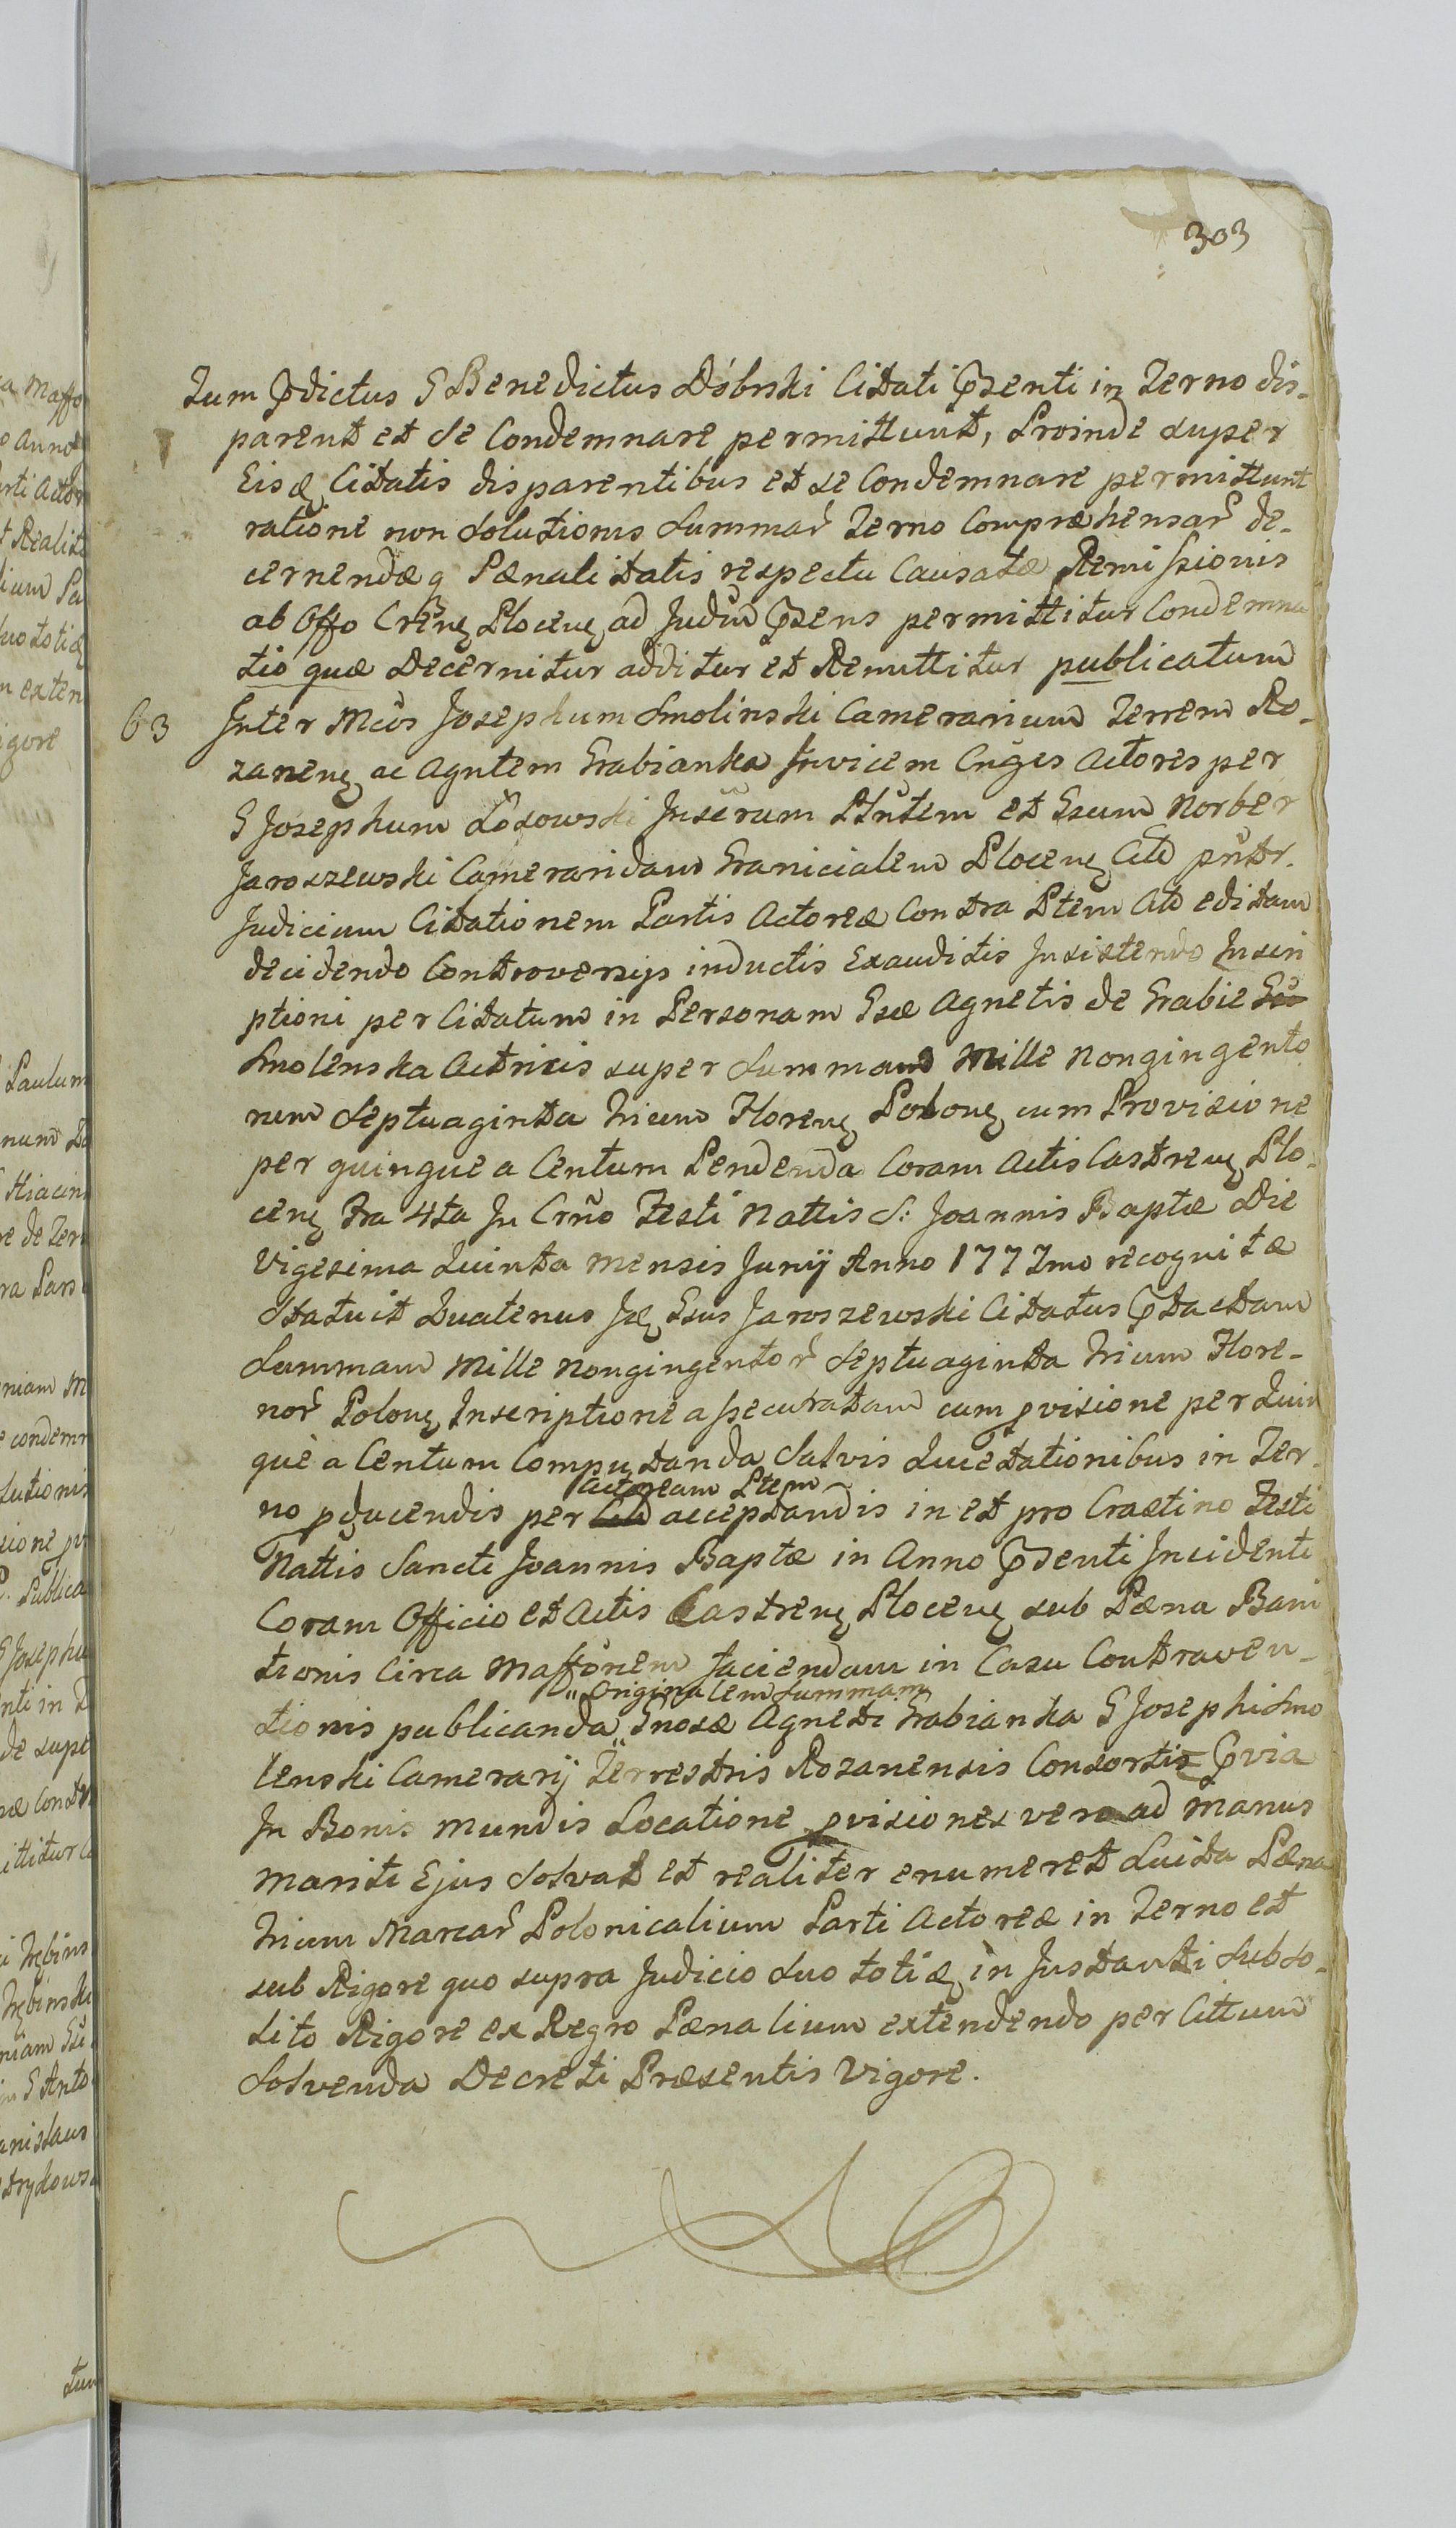 303
Tum Pdictus G Benedictus Dóbrski Citati Psenti in Terno dis-
parent et se Condemnare permittunt, Proinde super
Eisq Citatis disparentibus et se Condemnare permittunt
ratione non Solutionis Summar Terno Compræhensar de-
cernendæ q Pænalitatis respectu Causatæ Remissionis
ab Offo Creng Ploceng ad Judiu Psens permittitur Condemna
tio quæ Decernitur additur et Remittitur publicatum
63 Inter Mcos Josephum Smolinski Camerarium Terrem Ro-
zaneng ac Agntem Grabianka Invicem Cnges Actores per
G Josephum Losowski Juserum Plntem et Gsum Norber
Jaroszewski Cameraridam Granicialem Ploceng Citd pntr.
Judicium Citationem Partis Actoreæ Contra Ptem Citd editam
decidendo Controversys inductis Exauditis Insistendo Inscri
ptioni per Citatum in Personam Gsæ Agnetis de Grabie
Smolenska Actricis super Summam Mille Nongingento
rum Septuaginta Trium Floreng Polong cum Provisione
per quinque a Centum Pendenda Coram Actis Castreng Plo-
ceng Fra 4ta In Crño Festi Nattis S: Joannis Baptæ Die
Vigesima Quinta Mensis Junij Anno 1777mo recognitæ
Statuit Quatenus Jsq Gsus Jaroszewski Citatus Ptactam
Summam Mille Nongingentor Septuaginta Trium Flore-
nor Polong Inscriptione assecuratam cum pvisione per Quin
que a Centum Computanda Salvis Quietationibus in Ter-
Actoream Ptem
no pducendis per Citd acceptandis in et pro Crastino Festi
Nattis Sancti Joannis Baptæ in Anno Psenti Incidenti
Coram Officio et Actis Castreng Ploceng sub Pæna Bani
tionis Circa Maffonem faciendam in Casu Contraven-
" Originalem Summam
tionis publicanda " Gnosæ Agneti Grabianka G Josephi Smo
lenski Camerarij Terrestris Rozanensis Consortis Pvia
In Bonis Mundis Locatione pvisiones vero ad Manus
Mariti Ejus Solvat et realiter enumeret Luita Pæna
Trium Marcar Polonicalium Parti Actoreæ in Terno et
sub Rigore quo supra Judicio Suo totiq in Instanti Subso-
lito Rigore ex Regro Pænalium extendendo per Cittum
Solvenda Decreti Præsentis Vigore.